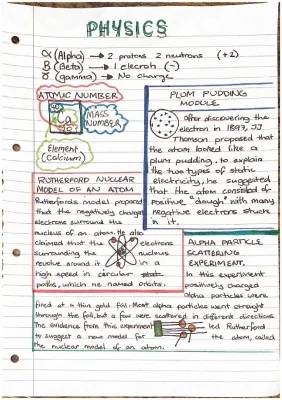 PHYSICS
α (Alpha) → 2 protons 2 neutrons (+2)
β (Beta) → 1 electron (-)
γ (gamma) → No charge
ATOMIC NUMBER
MASS
NUMBER
Element
(Calcium)
PLUM PUDDING
MODULE
After discovering the
electron in 1897, JJ
Thomson proposed that
the atom looked like a
plum pudding, to explain
the two types of static
electricity, he suggested
that the atom consisted of
positive "dough" with many
negative electrons stuck
in it.
RUTHERFORD NUCLEAR
MODEL OF AN ATOM
Rutherfords model proposed
that the negatively charged
electrons surround the
nucleus of an atom. He also
claimed that the electrons
surrounding the nucleus
revolve around it in a
high speed in circular
paths, which he named orbits.
ALPHA PARTICLE
SCATTERING
EXPERIMENT.
In this experiment
positively charged
alpha particles were
fired at a thin gold foil. Most alpha particles went straight
through the foil, but a few were scattered in different directions.
The evidence from this experiment led Rutherford
to suggest a new model for the atom, called
the nuclear model of an atom.